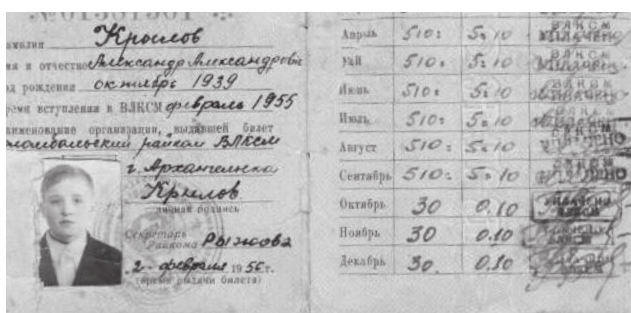 Фамилия Крылов
имя и отчество Александр Александрович
год рождения октябрь 1939
время вступления в ВЛКСМ февраль 1955
наименование организации, выдавшей билет
райком ВЛКСМ
г. Архангельска
Крылов
личная подпись
Секретарь
Райкома Рыжова
2 февраля 1956 г.
(время выдачи билета)
Апрель 510: 5=10 ВЛКСМ УПЛАЧЕНО
Май 510: 5=10 ВЛКСМ УПЛАЧЕНО
Июнь 510: 5=10 ВЛКСМ УПЛАЧЕНО
Июль 510: 5=10 ВЛКСМ УПЛАЧЕНО
Август 510: 5=10 ВЛКСМ УПЛАЧЕНО
Сентябрь 510: 5=10 ВЛКСМ УПЛАЧЕНО
Октябрь 30 0.10 УПЛАЧЕНО ВЛКСМ
Ноябрь 30 0.10 ВЛКСМ
Декабрь 30 0.10 ВЛКСМ